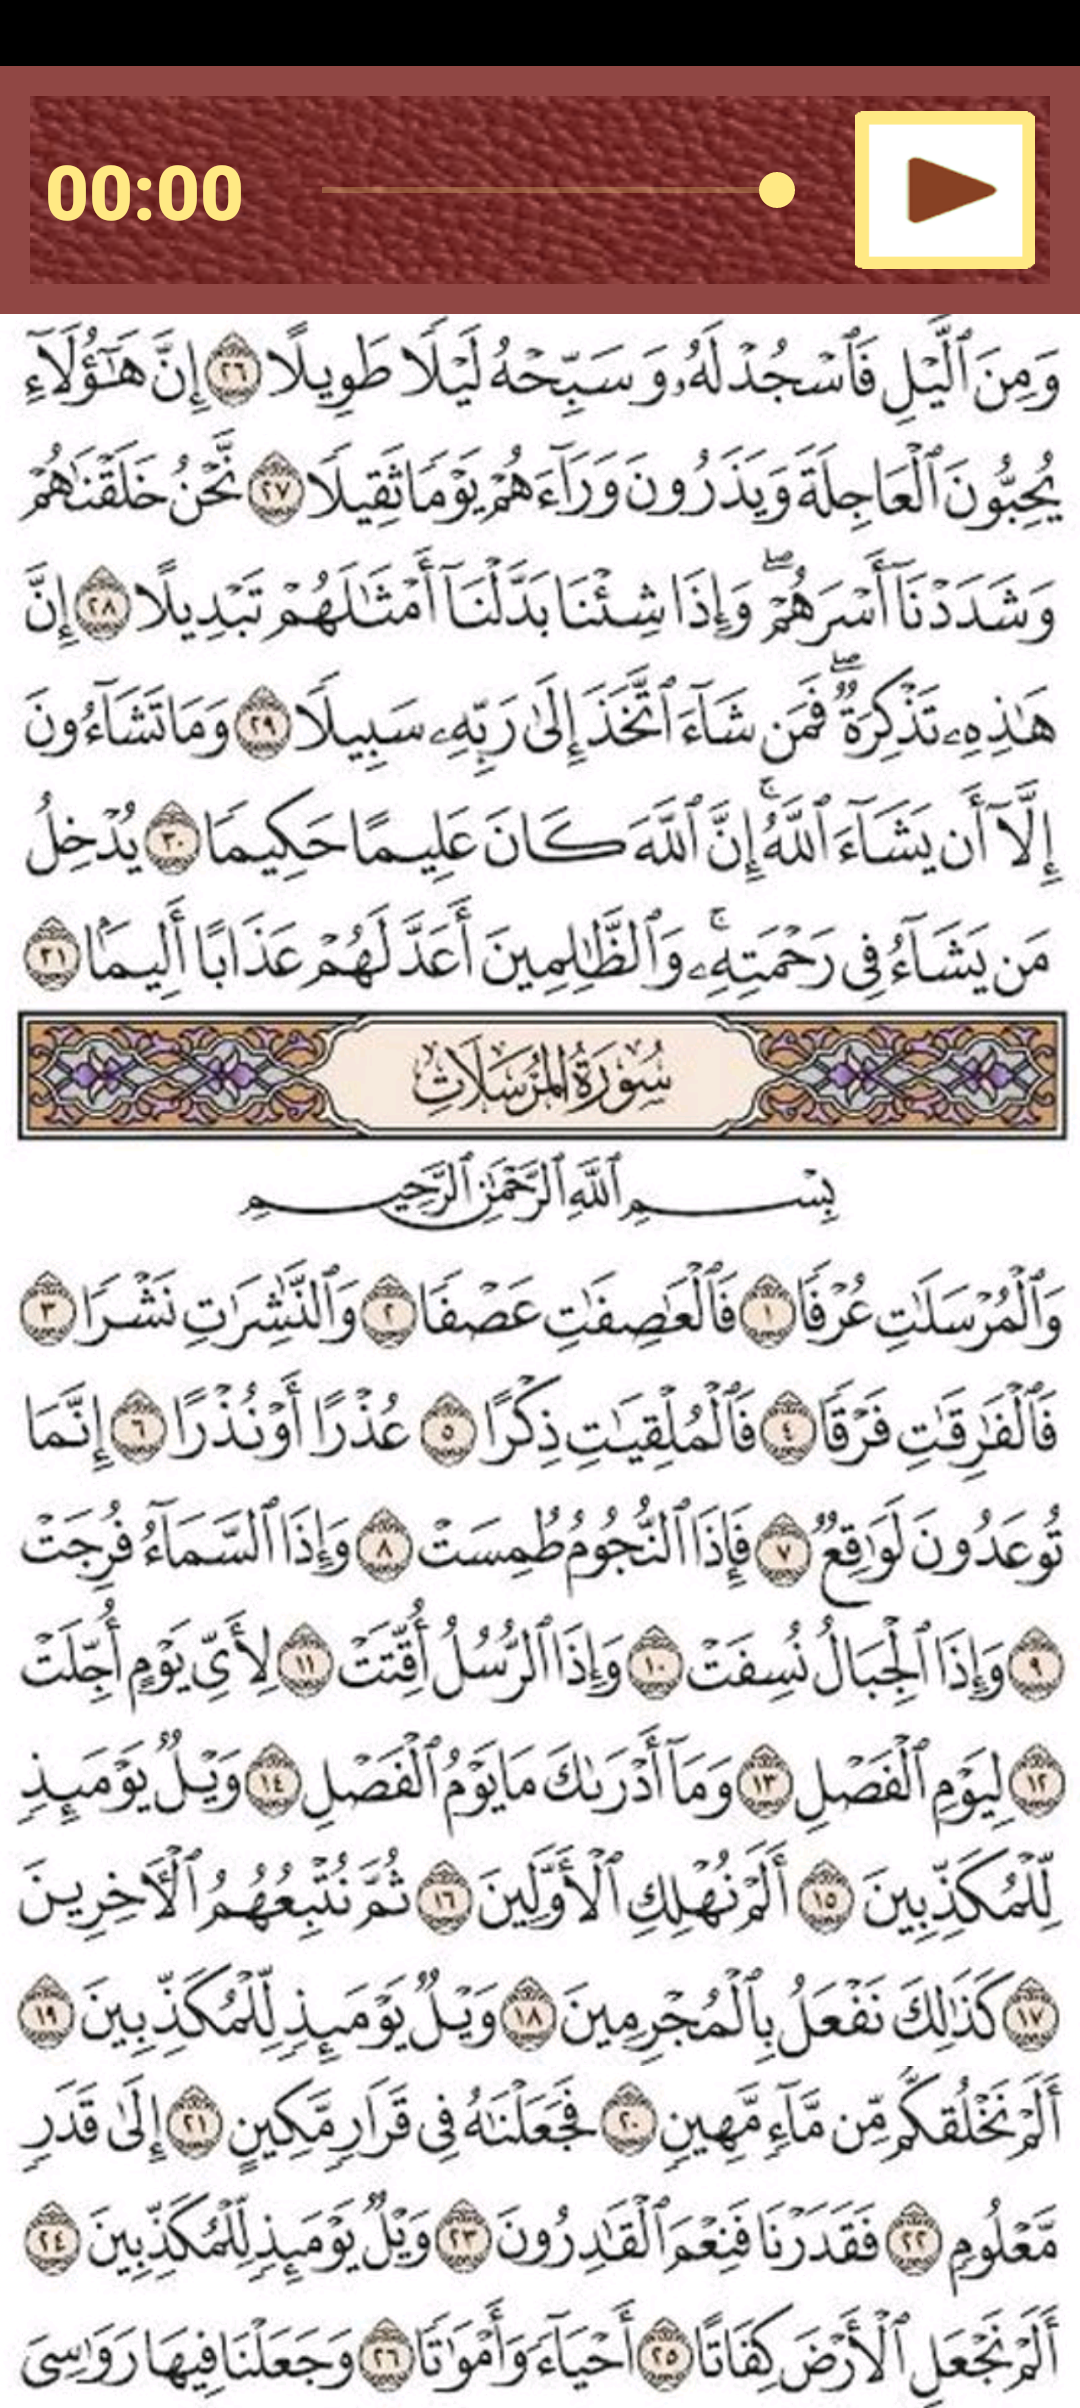 00:00
وَمِنَ ٱلَّيْلِ فَٱسْجُدْ لَهُۥ وَسَبِّحْهُ لَيْلًا طَوِيلًا ٢٦ إِنَّ هَٰٓؤُلَآءِ
يُحِبُّونَ ٱلْعَاجِلَةَ وَيَذَرُونَ وَرَآءَهُمْ يَوْمًا ثَقِيلًا ٢٧ نَّحْنُ خَلَقْنَٰهُمْ
وَشَدَدْنَآ أَسْرَهُمْ ۖ وَإِذَا شِئْنَا بَدَّلْنَآ أَمْثَٰلَهُمْ تَبْدِيلًا ٢٨ إِنَّ
هَٰذِهِۦ تَذْكِرَةٌ ۖ فَمَن شَآءَ ٱتَّخَذَ إِلَىٰ رَبِّهِۦ سَبِيلًا ٢٩ وَمَا تَشَآءُونَ
إِلَّآ أَن يَشَآءَ ٱللَّهُ ۚ إِنَّ ٱللَّهَ كَانَ عَلِيمًا حَكِيمًا ٣٠ يُدْخِلُ
مَن يَشَآءُ فِى رَحْمَتِهِۦ ۚ وَٱلظَّٰلِمِينَ أَعَدَّ لَهُمْ عَذَابًا أَلِيمًۢا ٣١
سُورَةُ المُرْسَلَاتِ
بِسْمِ ٱللَّهِ ٱلرَّحْمَٰنِ ٱلرَّحِيمِ
وَٱلْمُرْسَلَٰتِ عُرْفًا ١ فَٱلْعَٰصِفَٰتِ عَصْفًا ٢ وَٱلنَّٰشِرَٰتِ نَشْرًا ٣
فَٱلْفَٰرِقَٰتِ فَرْقًا ٤ فَٱلْمُلْقِيَٰتِ ذِكْرًا ٥ عُذْرًا أَوْ نُذْرًا ٦ إِنَّمَا
تُوعَدُونَ لَوَٰقِعٌ ٧ فَإِذَا ٱلنُّجُومُ طُمِسَتْ ٨ وَإِذَا ٱلسَّمَآءُ فُرِجَتْ
٩ وَإِذَا ٱلْجِبَالُ نُسِفَتْ ١٠ وَإِذَا ٱلرُّسُلُ أُقِّتَتْ ١١ لِأَىِّ يَوْمٍ أُجِّلَتْ
١٢ لِيَوْمِ ٱلْفَصْلِ ١٣ وَمَآ أَدْرَىٰكَ مَا يَوْمُ ٱلْفَصْلِ ١٤ وَيْلٌ يَوْمَئِذٍ
لِّلْمُكَذِّبِينَ ١٥ أَلَمْ نُهْلِكِ ٱلْأَوَّلِينَ ١٦ ثُمَّ نُتْبِعُهُمُ ٱلْـَٔاخِرِينَ
١٧ كَذَٰلِكَ نَفْعَلُ بِٱلْمُجْرِمِينَ ١٨ وَيْلٌ يَوْمَئِذٍ لِّلْمُكَذِّبِينَ ١٩
أَلَمْ نَخْلُقكُّم مِّن مَّآءٍ مَّهِينٍ ٢٠ فَجَعَلْنَٰهُ فِى قَرَارٍ مَّكِينٍ ٢١ إِلَىٰ قَدَرٍ
مَّعْلُومٍ ٢٢ فَقَدَرْنَا فَنِعْمَ ٱلْقَٰدِرُونَ ٢٣ وَيْلٌ يَوْمَئِذٍ لِّلْمُكَذِّبِينَ ٢٤
أَلَمْ نَجْعَلِ ٱلْأَرْضَ كِفَاتًا ٢٥ أَحْيَآءً وَأَمْوَٰتًا ٢٦ وَجَعَلْنَا فِيهَا رَوَٰسِىَ